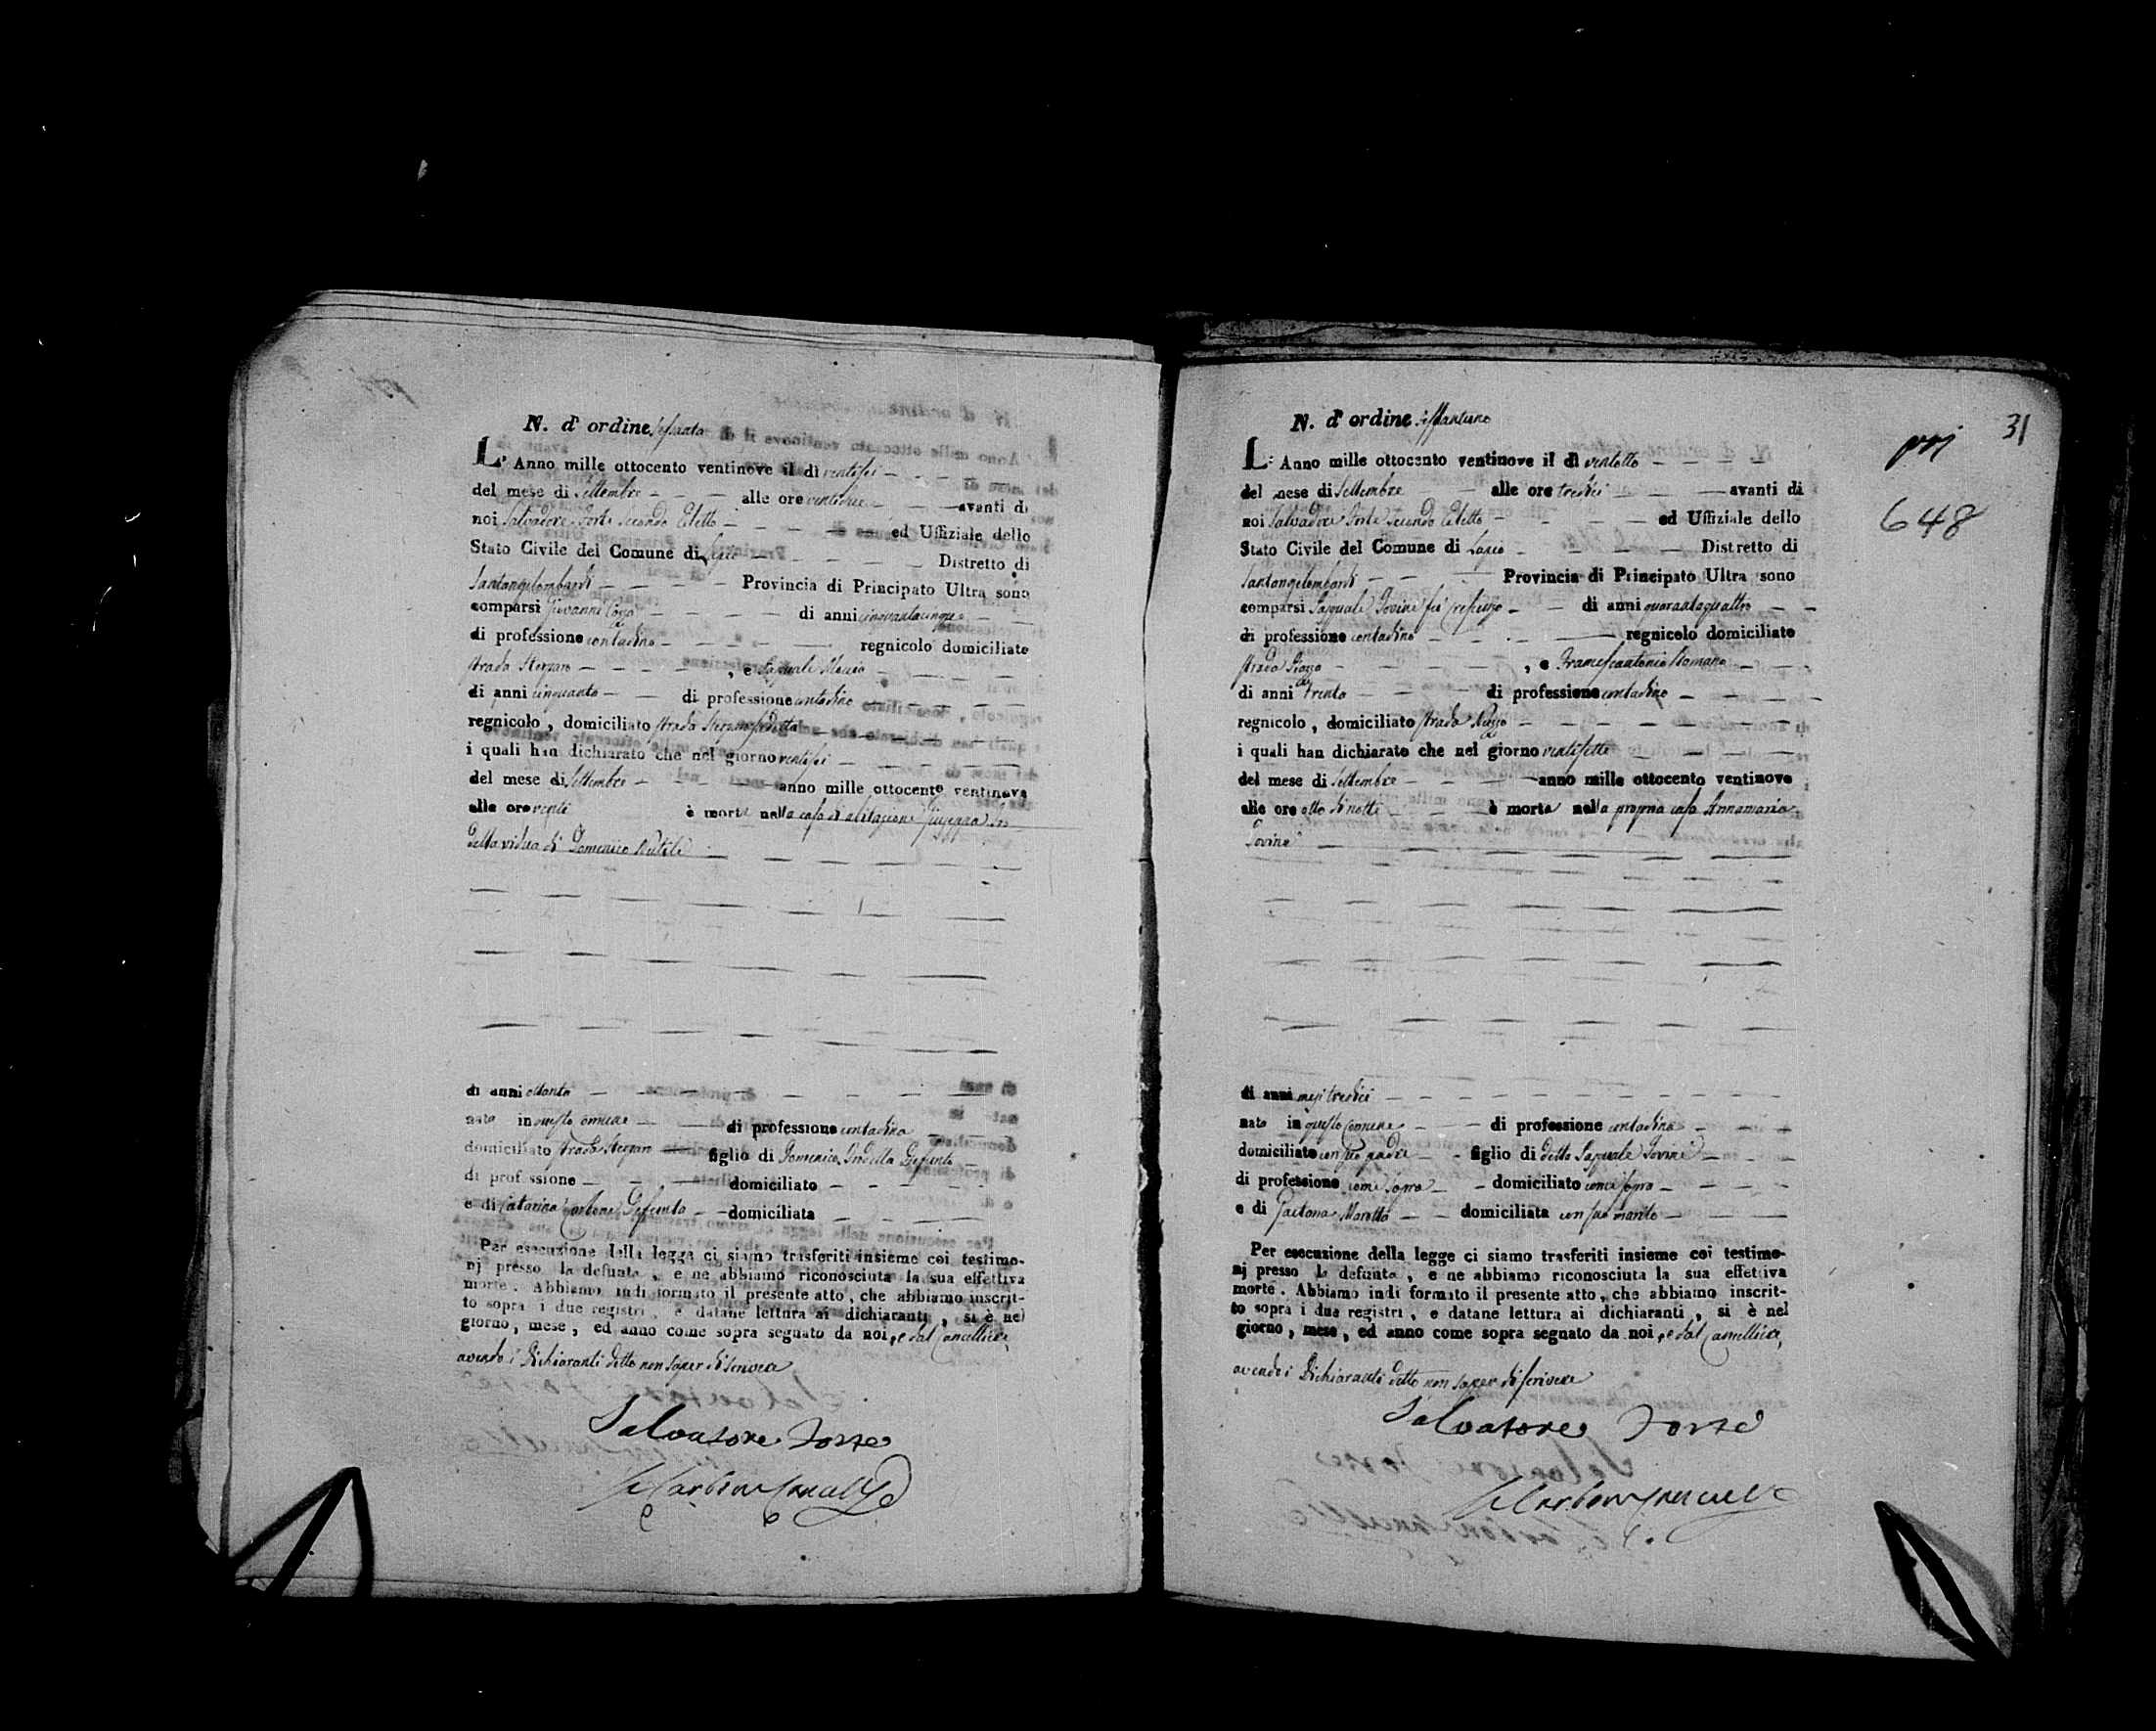 N. d' ordine sessanta
L' Anno mille ottocento ventinove il dì ventisei
del mese di Settembre alle ore ventidue avanti di
noi Salvadore Forte secondo Eletto ed Uffiziale dello
Stato Civile del Comune di Distretto di
Santangelombardi Provincia di Principato Ultra sono
comparsi Giovanni di anni cinquantacinque
di professione contadino regnicolo domiciliato
strada , e Pasquale
di anni cinquanta di professione contadino
regnicolo , domiciliato strada
i quali han dichiarato che nel giorno ventisei
del mese di Settembre anno mille ottocento ventinove
alle ore venti è morta nella casa di abitazione Giuseppa
della vidua di Domenico
di anni ottanta
nata in questo comune di professione contadina
domiciliato strada figlio di Domenico Defunto
di professione domiciliato
e di Catarina Carbone Defunta domiciliata
Per esecuzione della legge ci siamo trasferiti insieme coi testimo-
nj presso la defunta , e ne abbiamo riconosciuta la sua effettiva
morte . Abbiamo indi formato il presente atto , che abbiamo inscrit-
to sopra i due registri , e datane lettura ai dichiaranti , si è nel
giorno , mese , ed anno come sopra segnato da noi, e dal Cancelliere,
avendo i Dichiaranti detto non saper di scrivere
Salvatore Forte
31
648
N. d' ordine sessantuno
L' Anno mille ottocento ventinove il dì ventotto
del mese di Settembre alle ore tredici avanti di
noi Salvadore Forte secondo Eletto ed Uffiziale dello
Stato Civile del Comune di Distretto di
Santangelombardi Provincia di Principato Ultra sono
comparsi Pasquale Iovine fu Crescenzo di anni quarantaquattro
di professione contadino regnicolo domiciliato
strada , e Francescantonio Romano
di anni trenta di professione contadino
regnicolo , domiciliato strada
i quali han dichiarato che nel giorno ventisette
del mese di Settembre anno mille ottocento ventinove
alle ore otto di notte è morta nella propria casa Annamaria
Iovine
di anni mesi tredici
nata in questo Comune di professione contadina
domiciliato con suo padre figlio di detto Pasquale Iovine
di professione come sopra domiciliato come sopra
e di Gaetana Marotta domiciliata con suo marito
Per esecuzione della legge ci siamo trasferiti insieme coi testimo-
nj presso la defunta , e ne abbiamo riconosciuta la sua effettiva
morte . Abbiamo indi formato il presente atto , che abbiamo inscrit-
to sopra i due registri , e datane lettura ai dichiaranti , si è nel
giorno , mese , ed anno come sopra segnato da noi, e dal Cancelliere,
avendo i Dichiaranti detto non saper di scrivere
Salvatore Forte